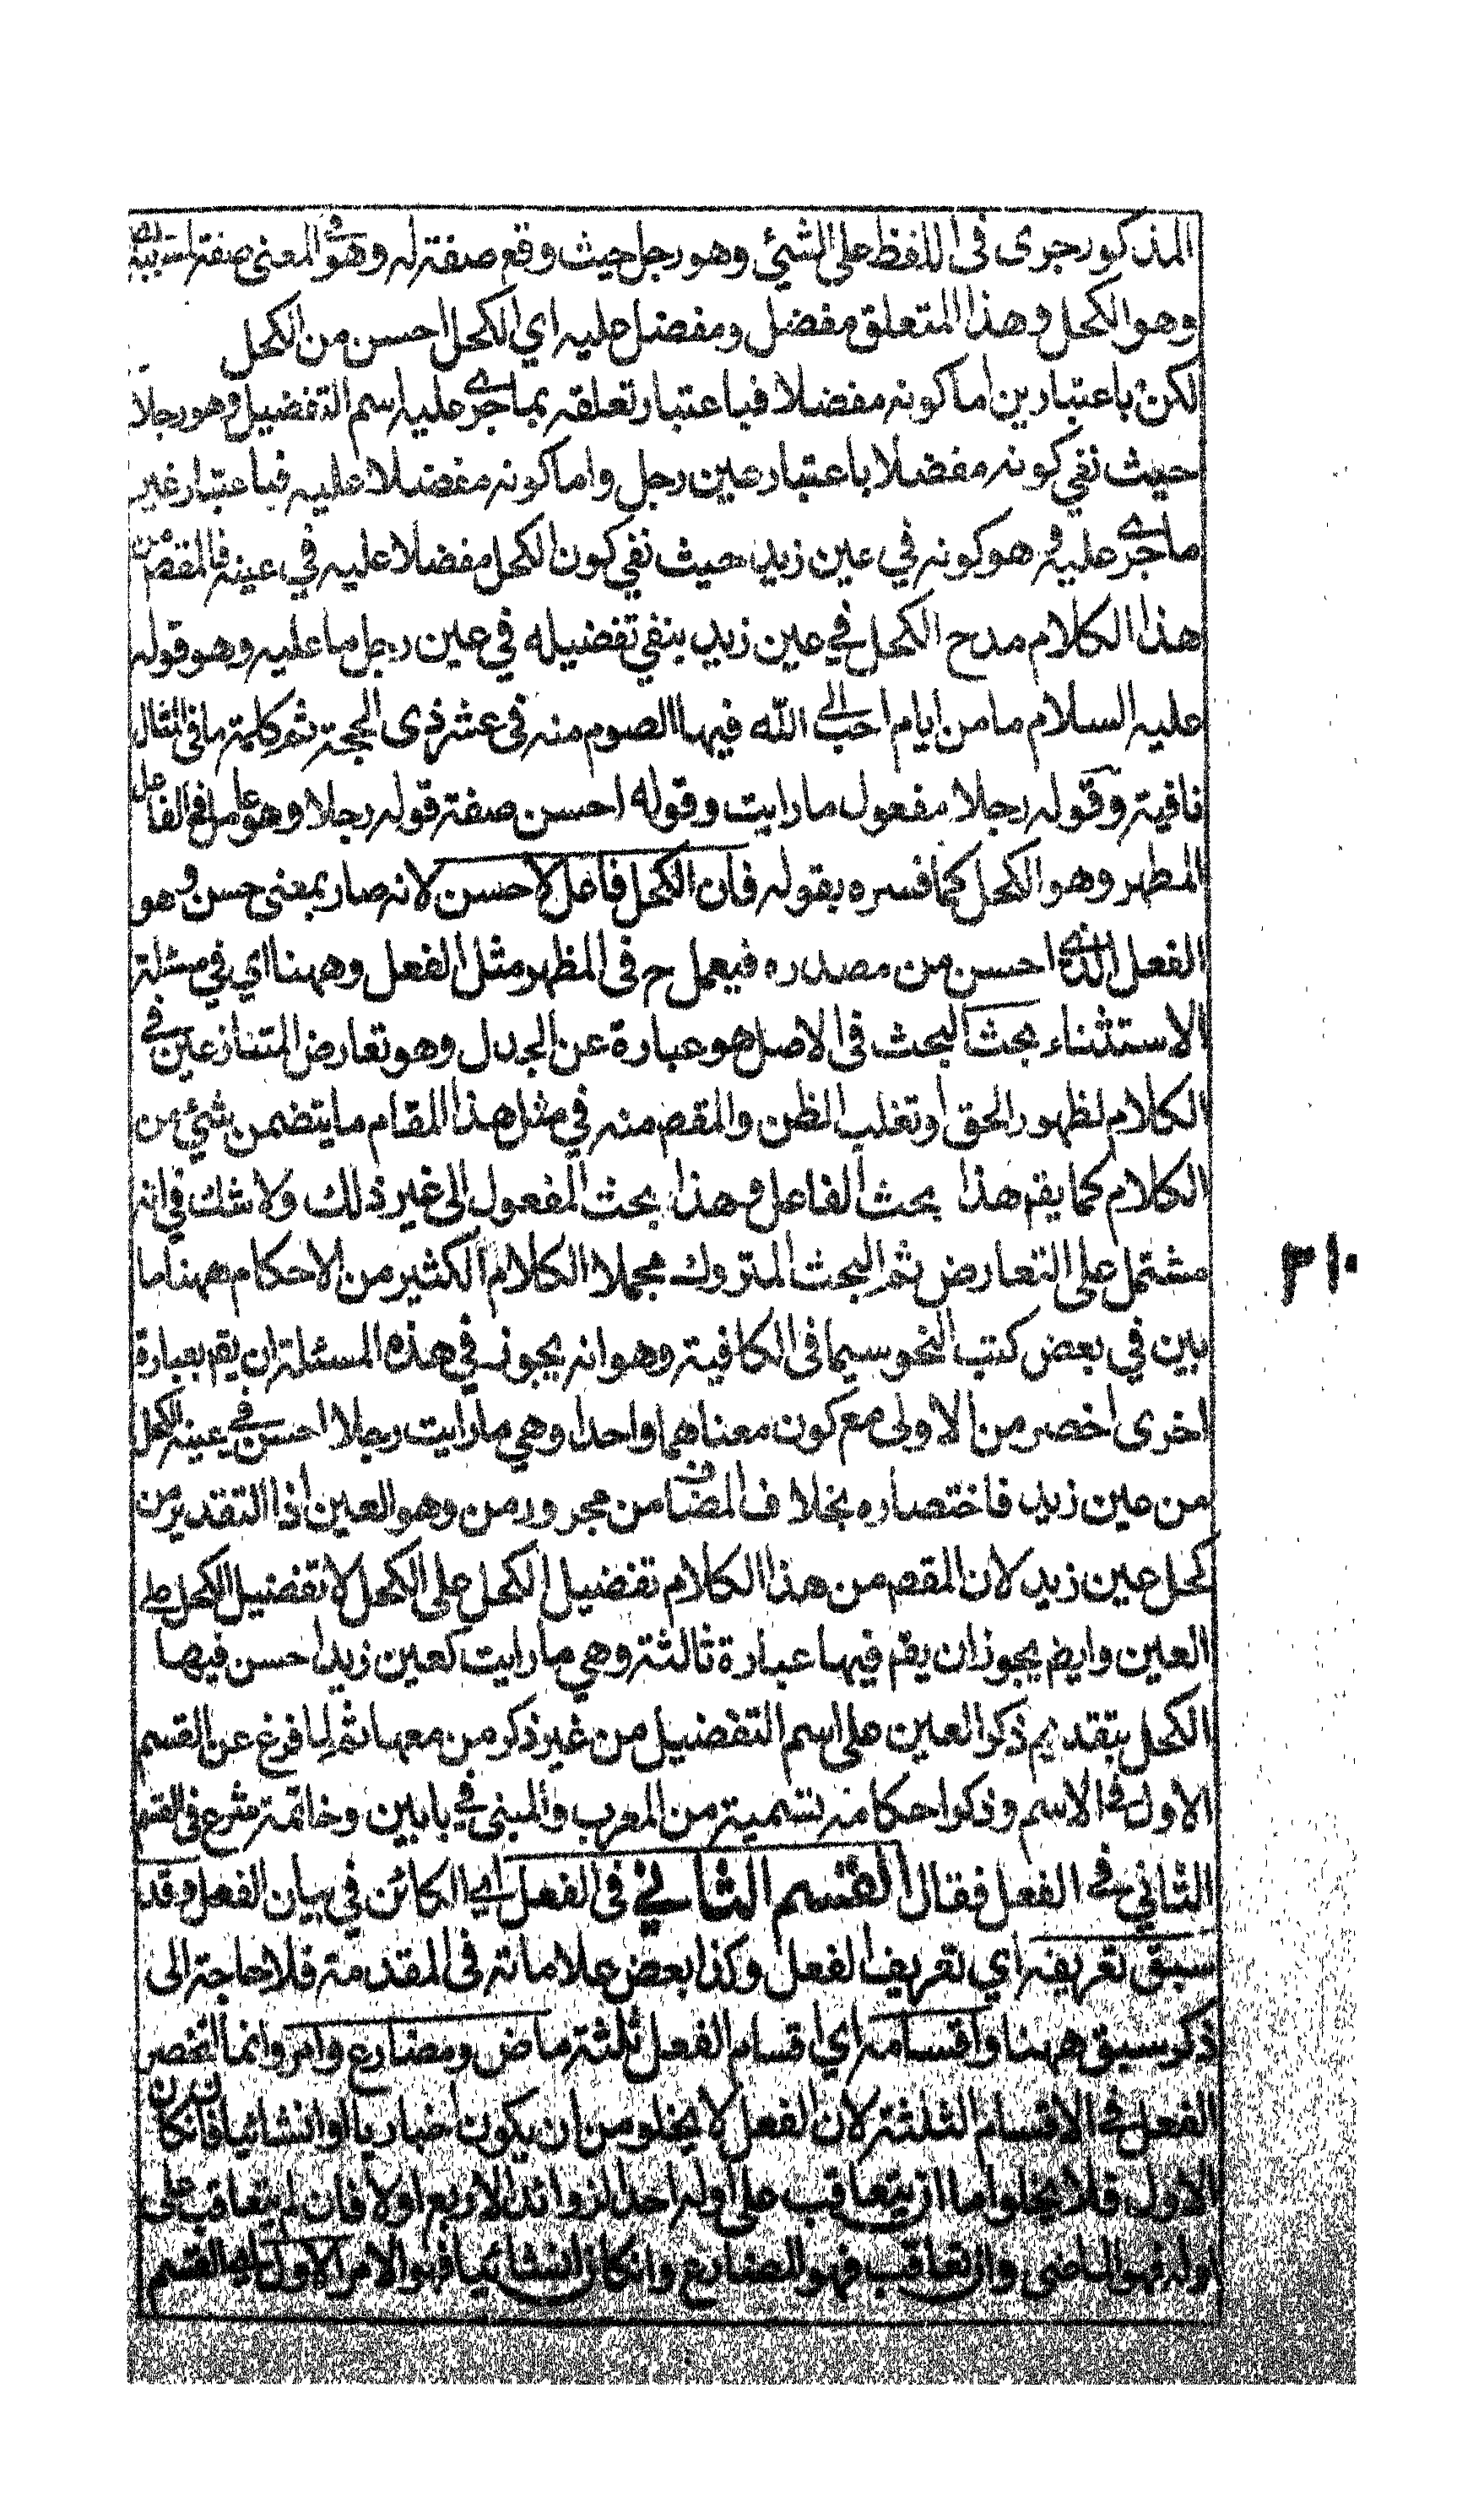 المذكور جرى فى اللفظ على الشئي وهو رجل حيث وقع صفة له وهو فى المعنى صفة لمسببه
وهو الكحل وهذا المتعلق مفضل ومفضل عليه اي الكحل احسن من الكحل
لكن باعتبارين اما كونه مفضلا فباعتبار تعلقه بما جرى عليه اسم التفضيل وهو رجلا
حيث نفي كونه مفضلا باعتبار عين رجل واما كونه مفضلا عليه فباعتبار غير
ما جرى عليه و هو كونه في عين زيد حيث نفي كون الكحل مفضلا عليه في عينه فالمقص من
هذا الكلام مدح الكحل في عين زيد بنفي تفضيله في عين رجل ما عليه وهو قوله
عليه السلام ما من ايام احب الى الله فيها الصوم منه فى عشر ذى الحجة ثم كلمة ما فى المثال
نافية وقوله رجلا مفعول ما رايت وقوله احسن صفة قوله رجلا وهو عامل فى الفاعل
المظهر وهو الكحل كما فسره بقوله فان الكحل فاعل لاحسن لانه صار بمعنى حسن و هو
الفعل الذي احسن من مصدره فيعمل ح فى المظهر مثل الفعل وههنا اي في مسئلة
الاستثناء بحث البحث فى الاصل هو عبارة عن الجدل وهو تعارض المتنازعين في
الكلام لظهور الحق او تغلب الظن والمقص منه في مثل هذا المقام ما يتضمن بشئي من
الكلام كما يقم هذا بحث الفاعل و هذا بحث المفعول الى غير ذلك ولا شك في انه
مشتمل على التعارض ثم البحث المتروك مجملا الكلام الكثير من الاحكام ههنا ما
بين في بعض كتب النحو سيما فى الكافية وهو انه يجوز في هذه المسئلة ان يقم بعبارة
اخرى اخصر من الاولى مع كون معناهما واحدا وهي ما رايت رجلا احسن في عينه الكحل
من عين زيد فاختصاره بخلاف المضاف من مجرور من وهو العين اذا التقدير من
كحل عين زيد لان المقص من هذا الكلام تفضيل الكحل على الكحل لا تفضيل الكحل على
العين وايض يجوز ان يقم فيها عبارة ثالثة وهي ما رايت كعين زيد احسن فيها
الكحل بتقديم ذكر العين على اسم التفضيل من غير ذكر من معها ثم لما فرغ عن القسم
الاول فى الاسم و ذكر احكامه تسمية من المعرب والمبنى فى بابين وخاتمة شرع فى القسم
الثاني فى الفعل فقال القسم الثاني فى الفعل اي الكائن في بيان الفعل وقد
سبق تعريفه اي تعريف الفعل وكذا بعض علاماته فى المقدمة فلا حاجة الى
ذكر سبق ههنا واقسامه اي اقسام الفعل ثلثة ماض ومضارع وامر وانما انحصر
الفعل فى الاقسام الثلثة لان الفعل لا يخلو من ان يكون اخباريا او انشائيا فانكان
الاول فلا يخلو اما ان يتعاقب على اوله احد الزوائد الاربع اولا فان لم يتعاقب على
اوله فهو الماضى وان تعاقب فهو المضارع وانكان انشائيا فهو الامر الاول اي القسم
٣١٠